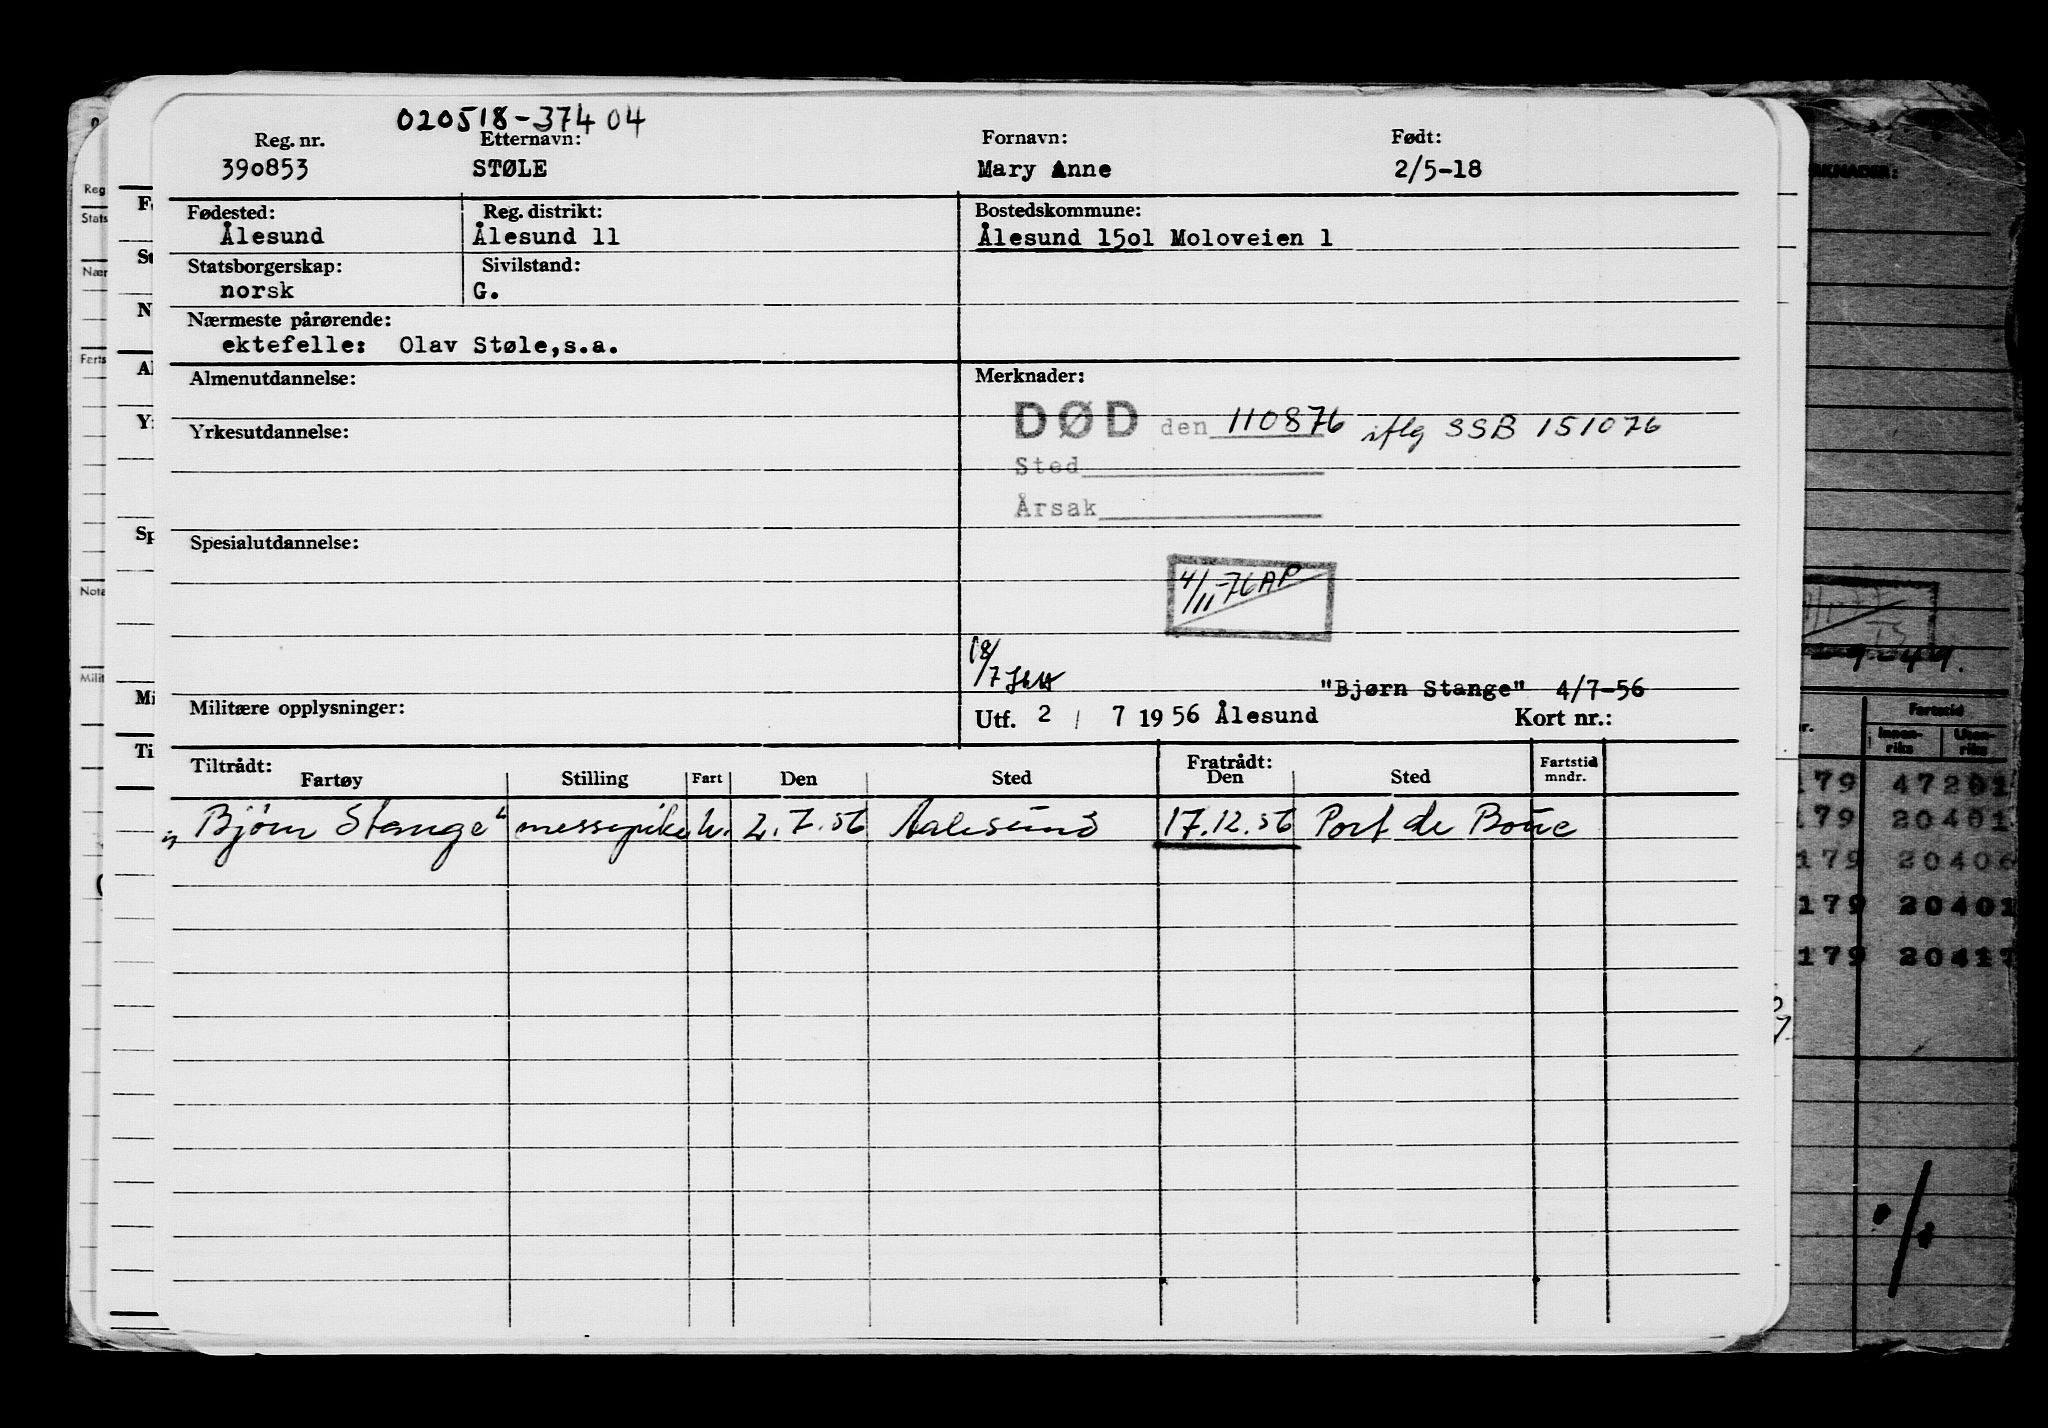 020518-37404
Reg. nr. Etternavn: Fornavn: Født:
390853 STØLE Mary Anne 2/5-18
Fødested: Reg. distrikt: Bostedskommune:
Ålesund Ålesund 11 Ålesund 1501 Moloveien 1
Statsborgerskap: Sivilstand:
norsk G.
Nærmeste pårørende:
ektefelle: Olav Støle,s.a.
Almenutdannelse: Merknader:
DØD den 110876 iflg SSB 151076
Yrkesutdannelse:
Sted
Årsak
Spesialutdannelse:
4/11-76 AP
18/7
"Bjørn Stange" 4/7-56
Militære opplysninger: Utf. 2 / 7 1956 Ålesund Kort nr.:
Tiltrådt: Fratrådt: Fartstid
Fartøy Stilling Fart Den Sted Den Sted mndr.
"Bjørn Stange" messepike u. 2.7.56 Aalesund 17.12.56 Port de Bouc
Reg
Stats
Nær
Farts
Nota
Milit
F
St
N
Al
Y
Sp
Mi
Ti
RKNADER:
9-49.
r. Fartstid
Innen-riks Uten-riks
179 47201
179 20401
179 20406
179 20401
179 20417